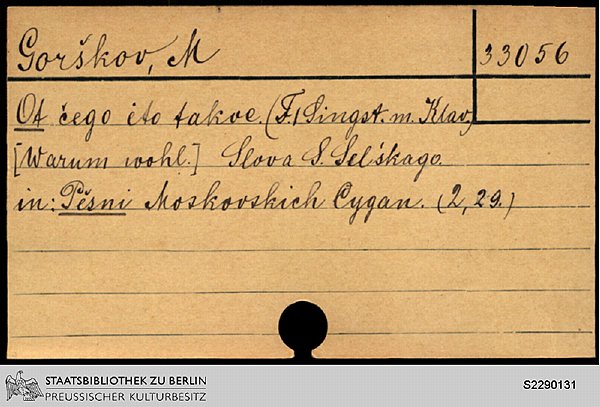 Gorškov, M
33056
Ot čego ėto takoe. (F. 1 Singst. m. Klav.)
[Warum wohl.] Slova S. Selʹskago.
in: Pěsni Moskovskich Cygan. (2, 29.)
STAATSBIBLIOTHEK ZU BERLIN
PREUSSISCHER KULTURBESITZ
S2290131